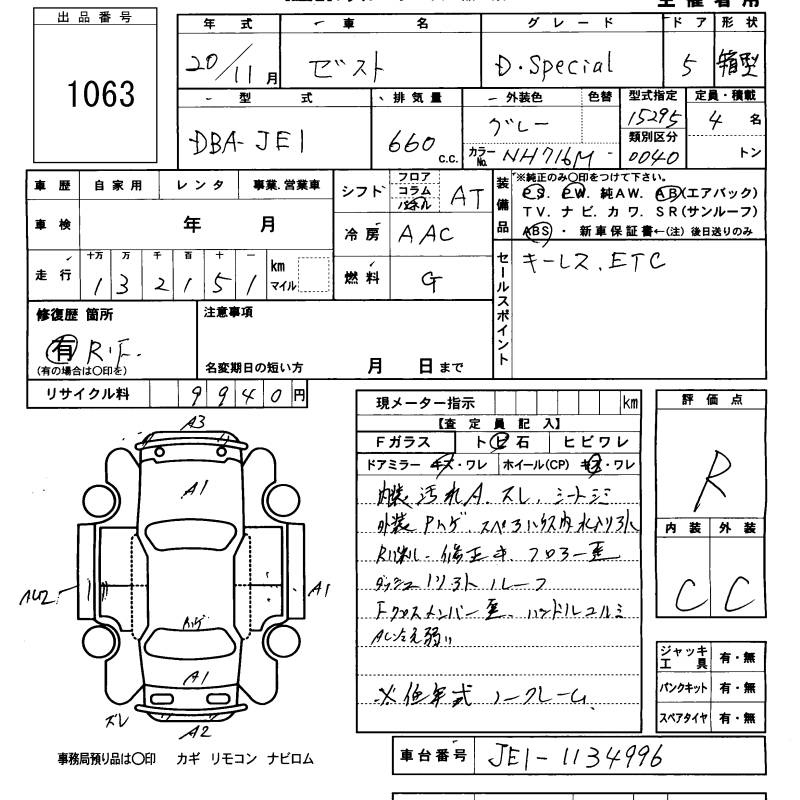 出品番号
1063
年式 車名 グレード ドア 形状
20/11月 ゼスト D・Special 5 箱型
型式 排気量 外装色 色替 型式指定 定員・積載
DBA-JE1 660 c.c. グレー 15295 4名
類別区分
カラーNo. NH716M 0040 トン
車歴 自家用 レンタ 事業.営業車
車検 年 月
走行 十万 万 千 百 十 一
1 3 2 1 5 1 km マイル
シフト フロア コラム パネル AT
冷房 AAC
燃料 G
装備品
※純正のみ〇印をつけて下さい。
PS. PW. 純AW. AB(エアバック)
TV. ナビ. カワ. SR(サンルーフ)
ABS ・ 新車保証書←(注) 後日送りのみ
セールスポイント
キーレス、ETC
修復歴 箇所
有 R・F.
(有の場合は〇印を)
注意事項
名変期日の短い方 月 日まで
リサイクル料 9940円
現メーター指示 km
【査定員記入】
Fガラス トビ石 ヒビワレ
ドアミラー キズ・ワレ ホイール(CP) キズ・ワレ
内装 汚れA、スレ、シートシミ
外装 Pハゲ、
修正キ、フロアー歪
ルーフ
Fクロスメンバー歪、ハンドルユルミ
弱い
※低年式 ノークレーム、
評価点
R
内装 外装
C C
ジャッキ工具 有・無
パンクキット 有・無
スペアタイヤ 有・無
A3
A1
A1
ハゲ
A1
ズレ
A2
事務局預り品は〇印 カギ リモコン ナビロム
車台番号 JE1-1134996